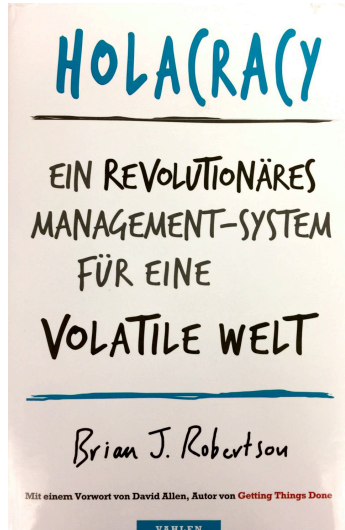 HOLACRACY
EIN REVOLUTIONÄRES
MANAGEMENT-SYSTEM
FÜR EINE
VOLATILE WELT
Brian J. Robertson
Mit einem Vorwort von David Allen, Autor von Getting Things Done
VAHLEN